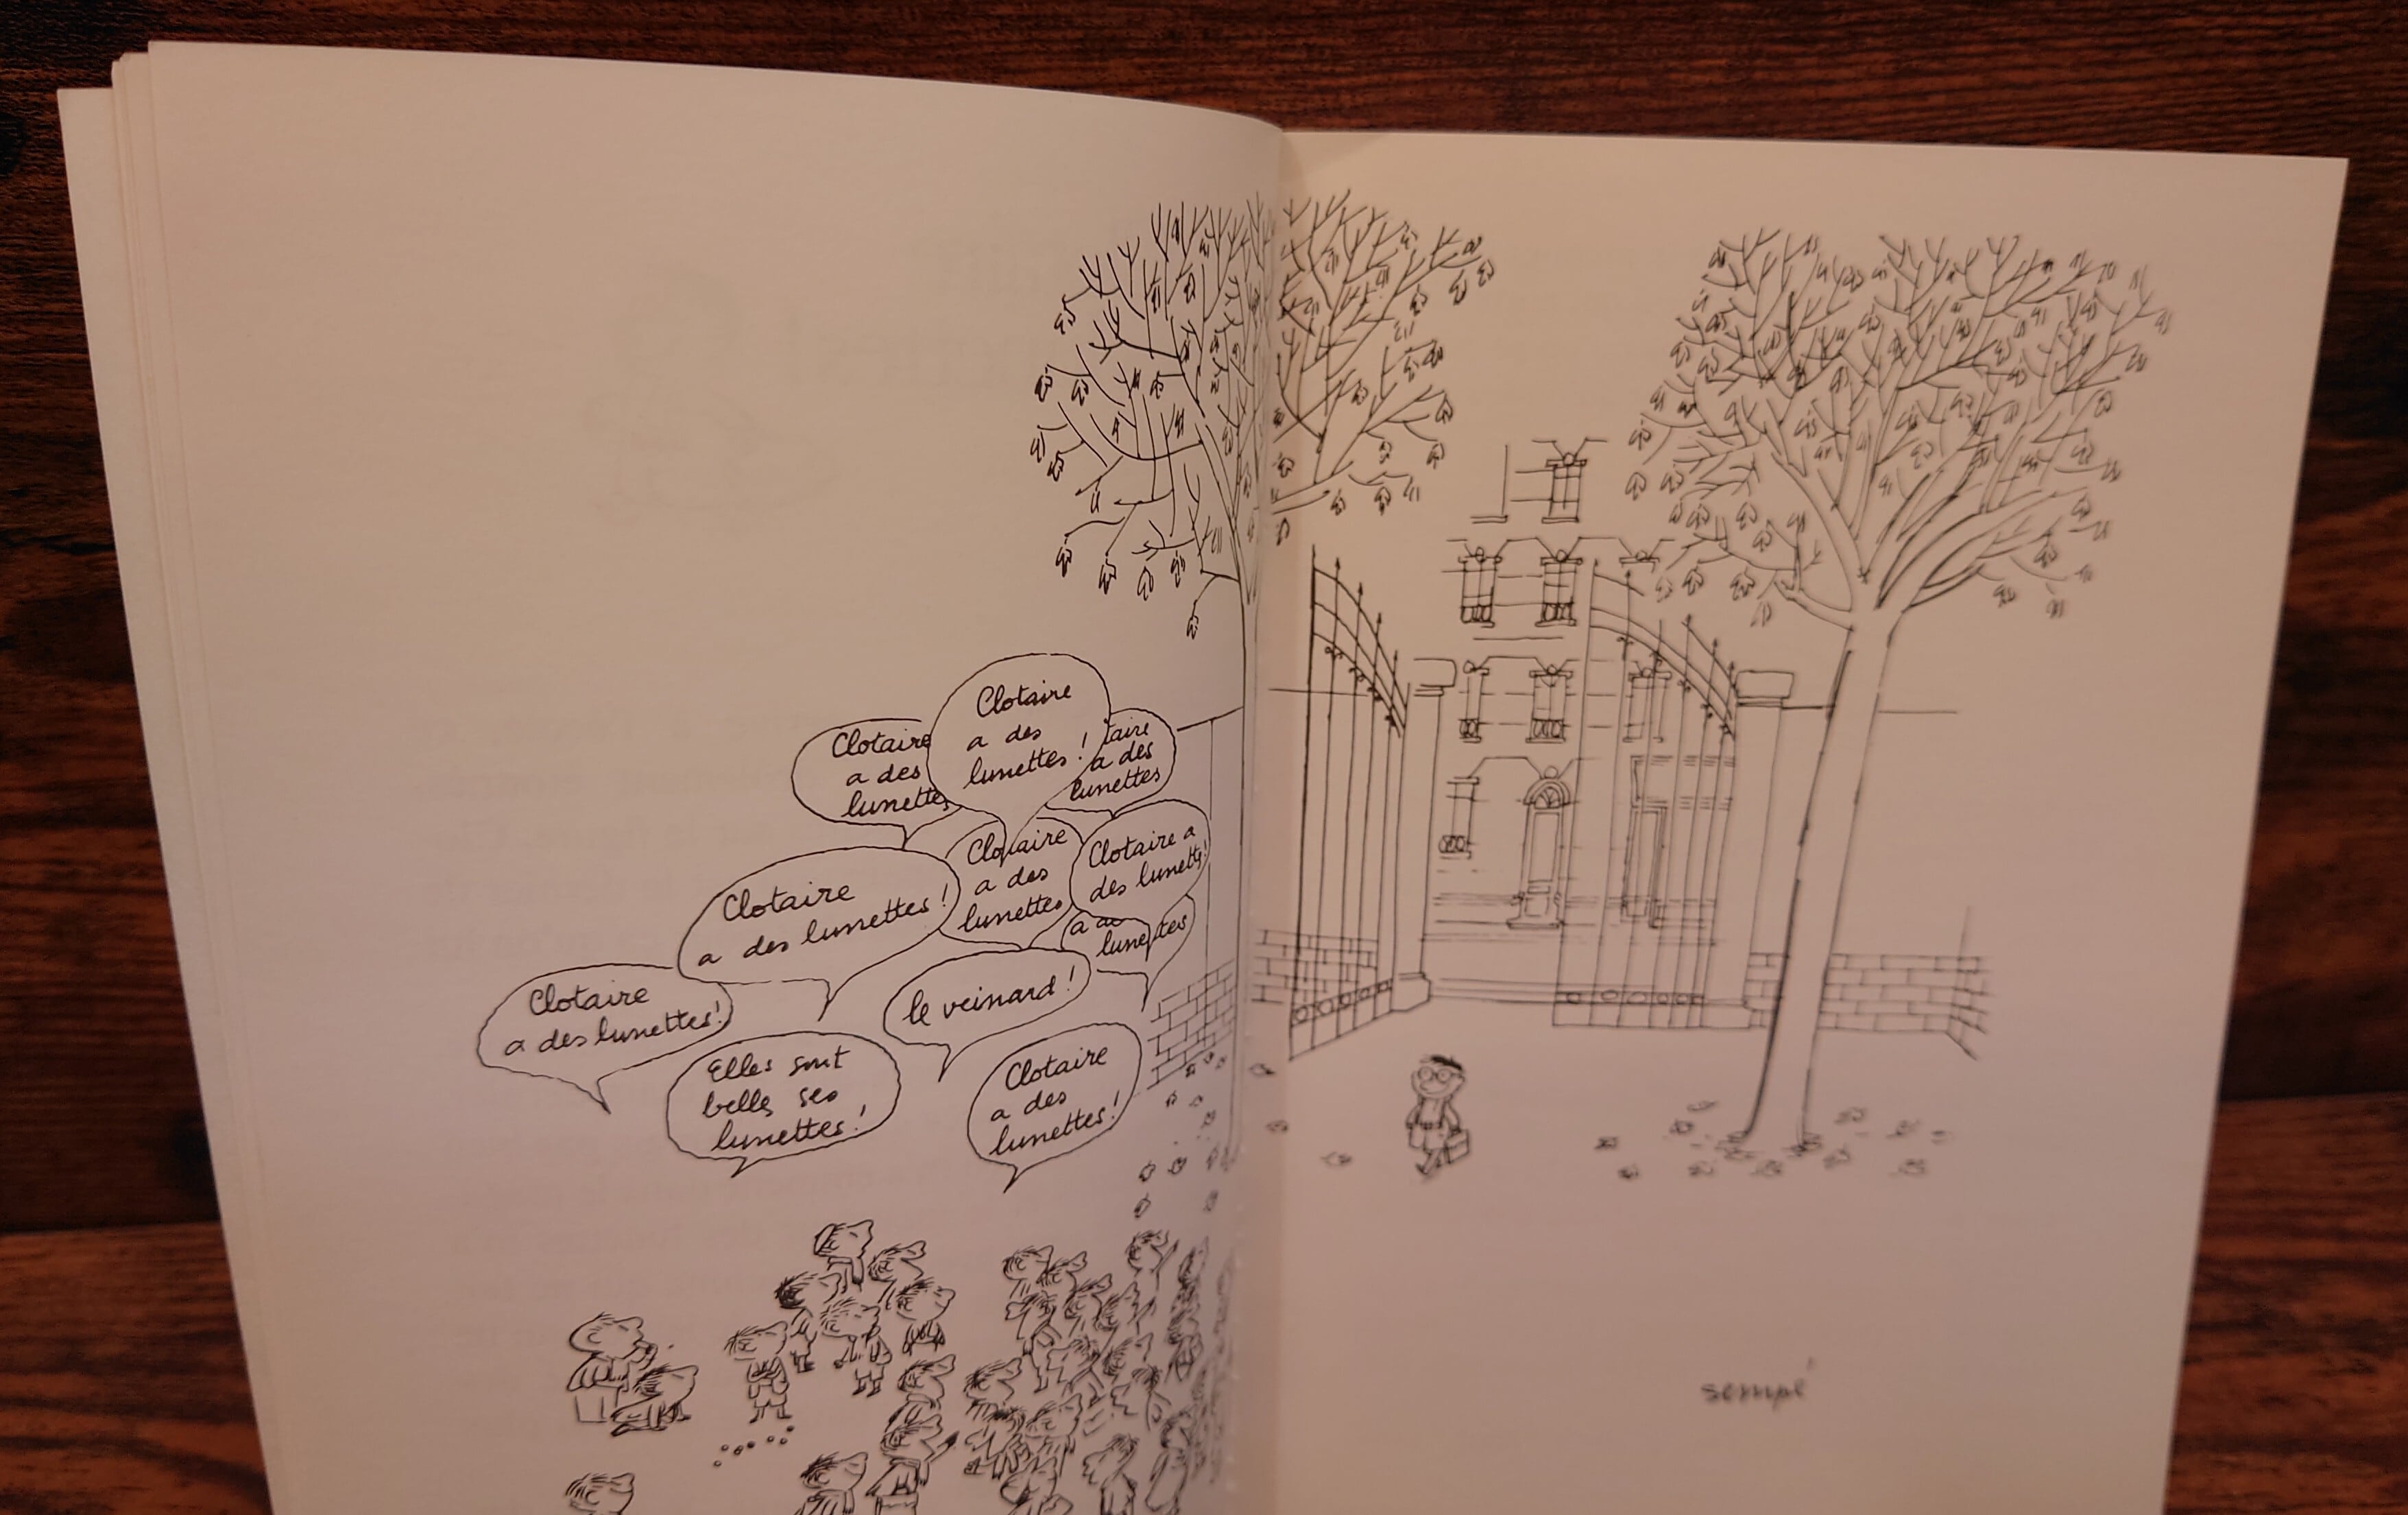 Clotaire
a des
lunettes
Clotaire
a des
lunettes!
taire
a des
lunettes
Clotaire
a des lunettes!
Clotaire
a des
lunettes
Clotaire a
des lunett!
a
lunettes
Clotaire
a des lunettes!
le veinard!
Elles sont
belles ses
lunettes!
Clotaire
a des
lunettes!
sempé